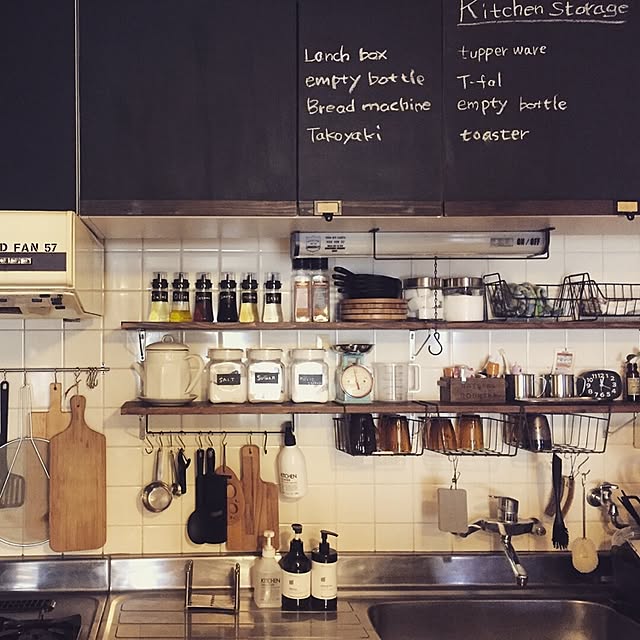 Kitchen Storage
Lanch box
empty bottle
Bread machine
Takoyaki
tupper ware
T-fal
empty bottle
toaster
D FAN 57
ON/OFF
SALT
SUGAR
KITCHEN
KITCHEN